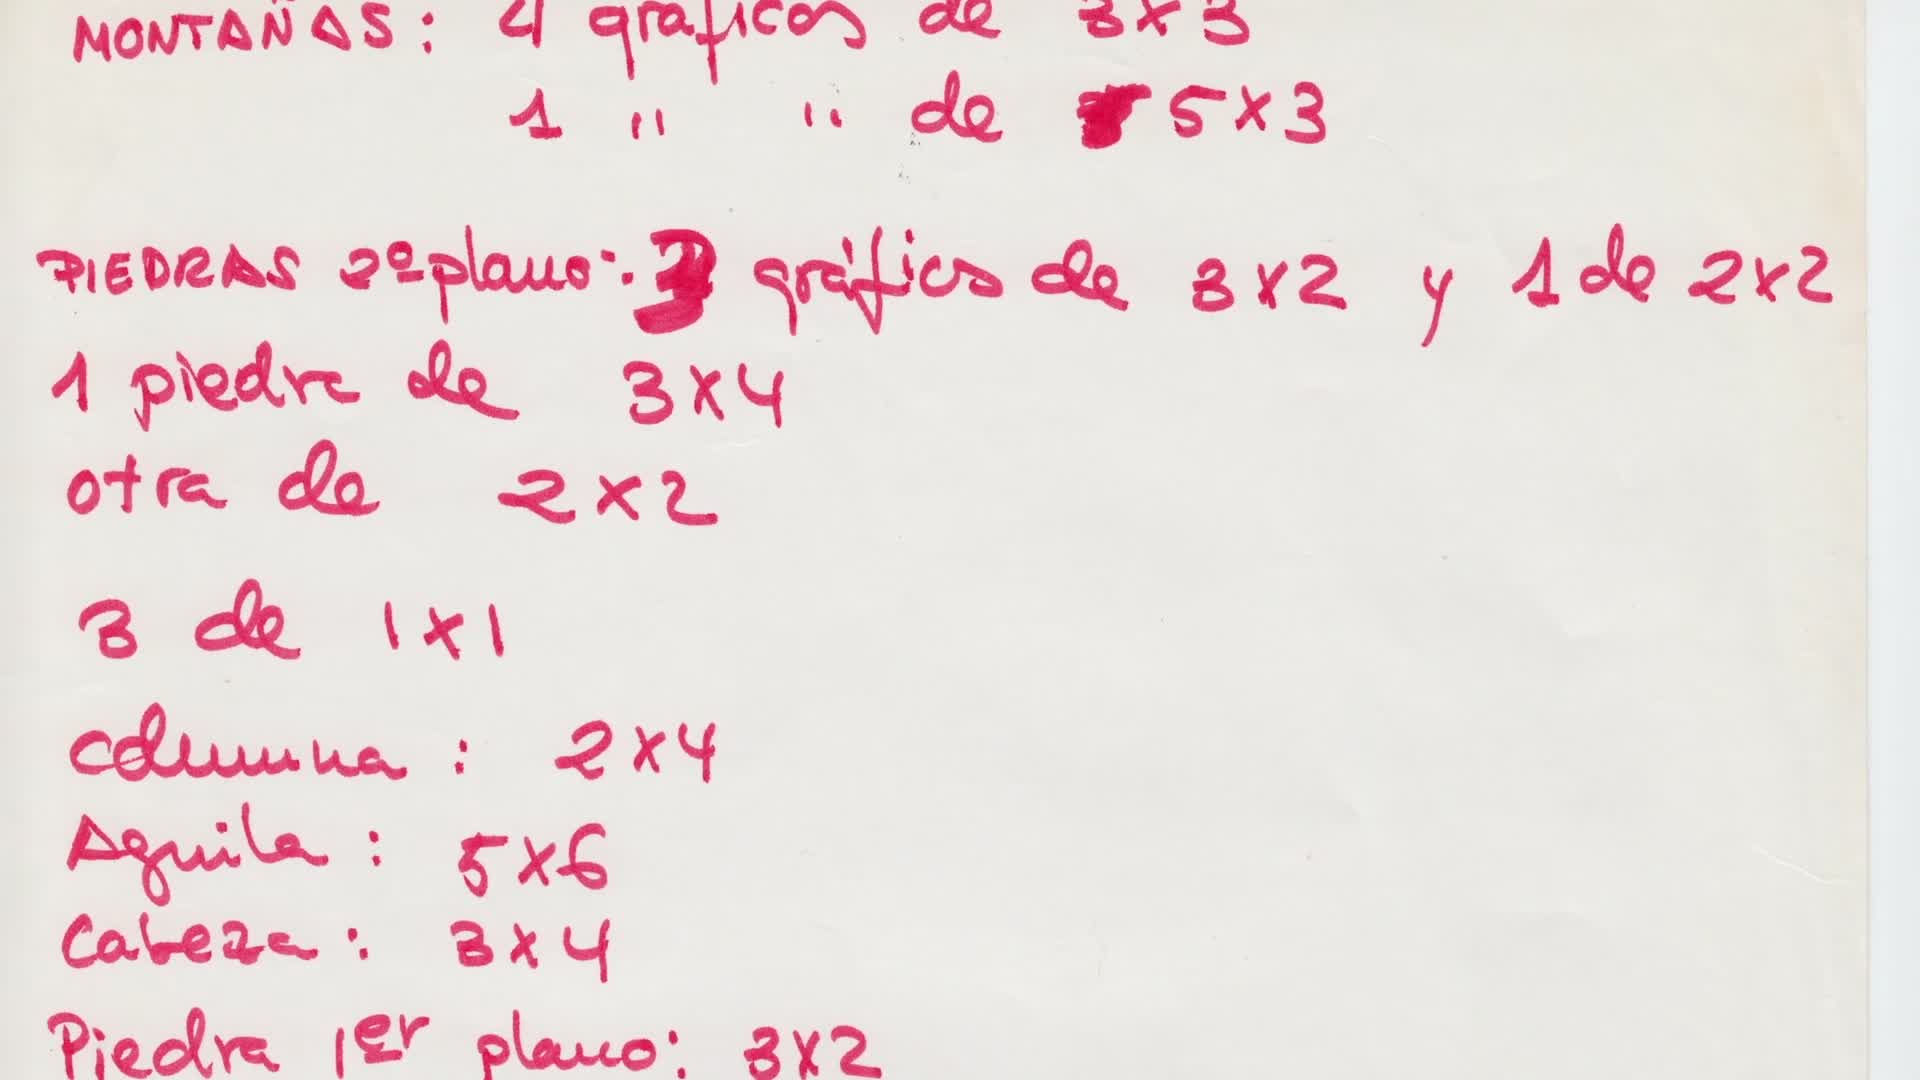 MONTAÑAS: 4 gráficos de 3x3
1 " " de 5x3
PIEDRAS 2º plano: 3 gráficos de 3x2 y 1 de 2x2
1 piedra de 3x4
otra de 2x2
3 de 1x1
columna: 2x4
Aguila: 5x6
Cabeza: 3x4
Piedra 1er plano: 3x2